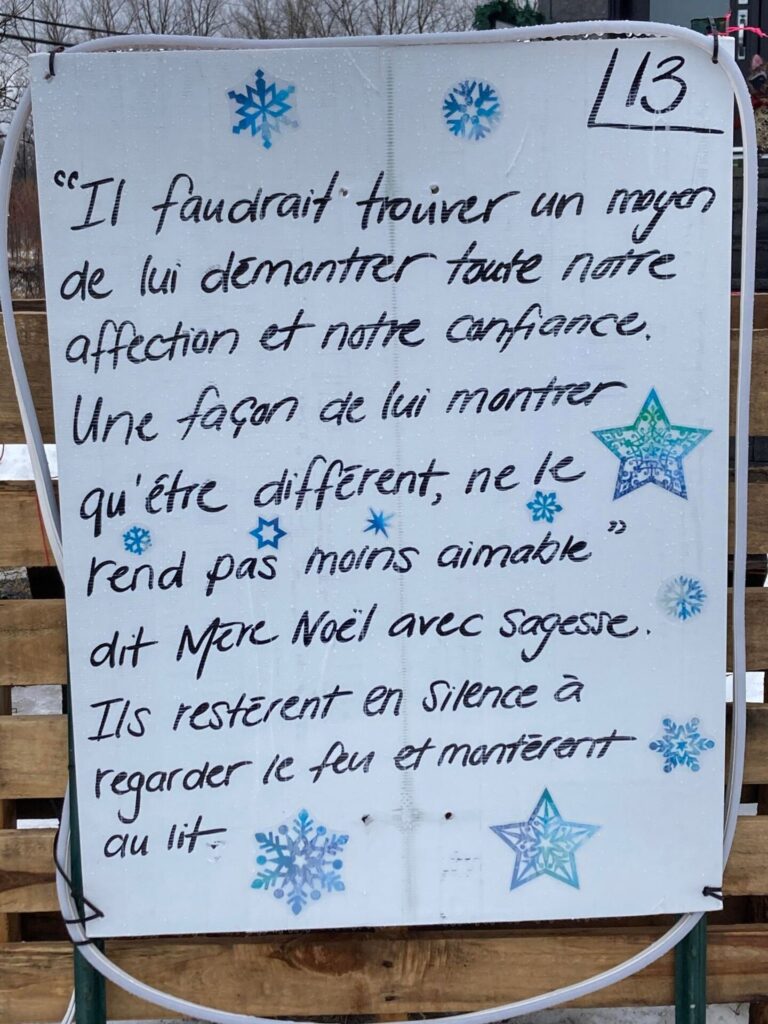 13
"Il faudrait trouver un moyen
de lui démontrer toute notre
affection et notre confiance.
Une façon de lui montrer
qu'être différent, ne le
rend pas moins aimable"
dit Mère Noël avec sagesse.
Ils restèrent en silence à
regarder le feu et montèrent
au lit.